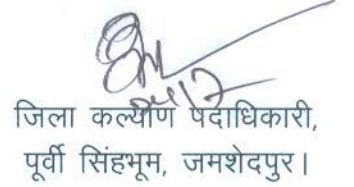 जिला कल्याण पदाधिकारी,
पूर्वी सिंहभूम, जमशेदपुर।